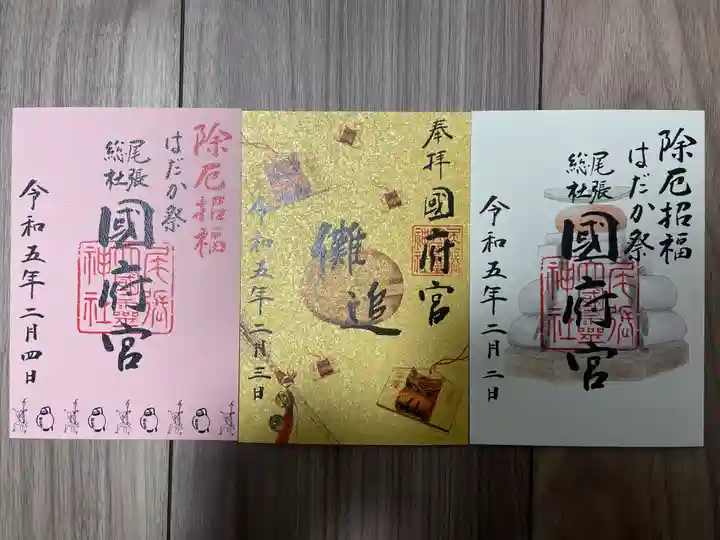 除厄招福
はだか祭
尾張
総社
國府宮
令和五年二月四日
奉拝
國府宮
儺追
令和五年二月三日
除厄招福
はだか祭
尾張
総社
國府宮
令和五年二月二日